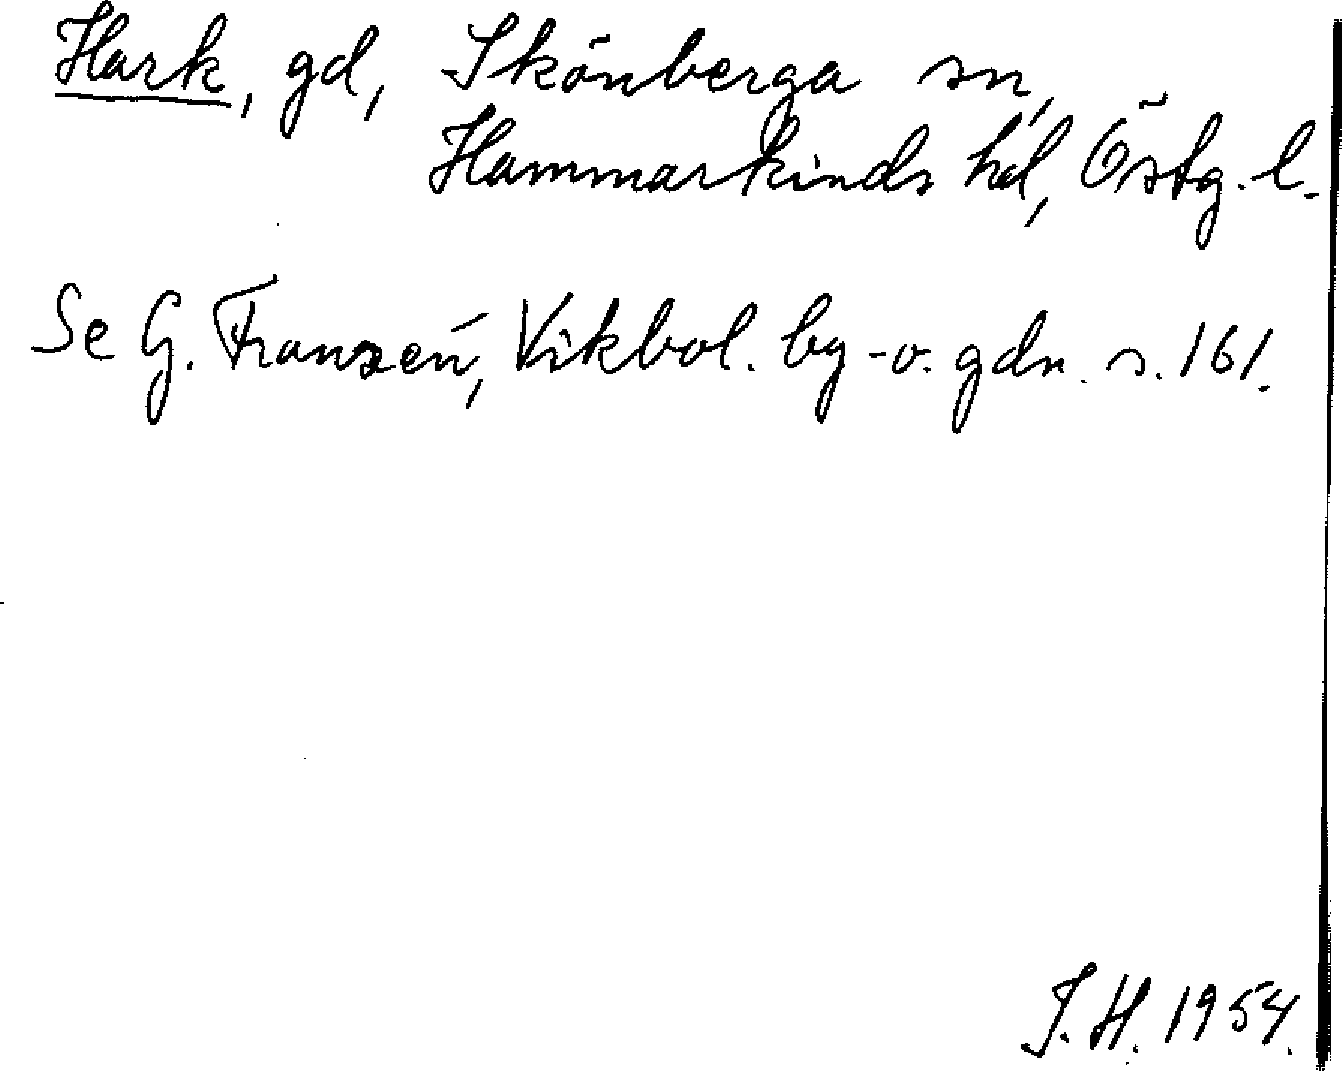 Hark, gd, Skönberga sn,
Hammarkinds hd, Östg. l.
Se G. Franzén, Vikbol. by- o. gdn. s. 161.
I. H. 1954.